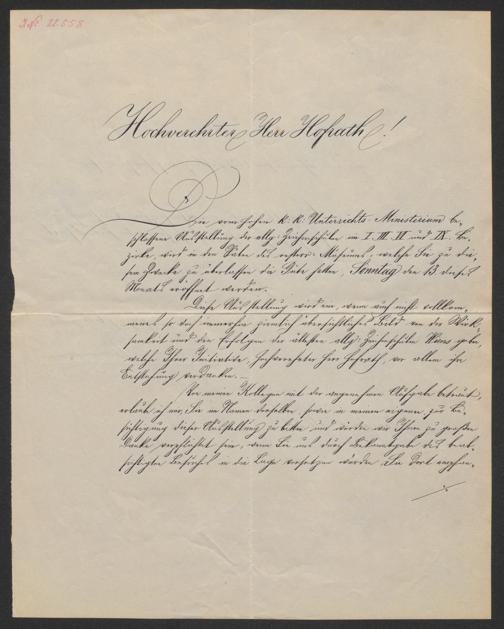 I.N. 22.558
Hochverehrter Herr Hofrath!
Die vom hohen k. k. Unterrichts-Ministerium be-
schlossene Ausstellung der allg. Zeichenschule im I. III. VI und IX. Be-
zirke, wird in den Sälen des österr. Museums, welche Sie zu die-
sem Zwecke zu überlassen die Güte hatten, Sonntag den 13 dieses
Monats eröffnet werden.
Diese Ausstellung wird ein, wenn auch nicht vollkom-
menes so doch immerhin ziemlich übersichtliches Bild von der Wirk-
samkeit und den Erfolgen der ältesten allg. Zeichenschule Wiens geben,
welche Ihrer Initiative, hochverehrter Herr Hofrath, vor allem ihre
Entstehung verdanken.—
Von meinen Kollegen mit der angenehmen Aufgabe betraut,
erlaube ich mir, Sie im Namen derselben sowie in meinem eigenen zur Be-
sichtigung dieser Ausstellung zu bitten und würden wir Ihnen zu großem
Danke verpflichtet sein, wenn Sie uns durch Bekanntgabe des beab-
sichtigten Besuches in die Lage versetzen würden Sie dort empfan-